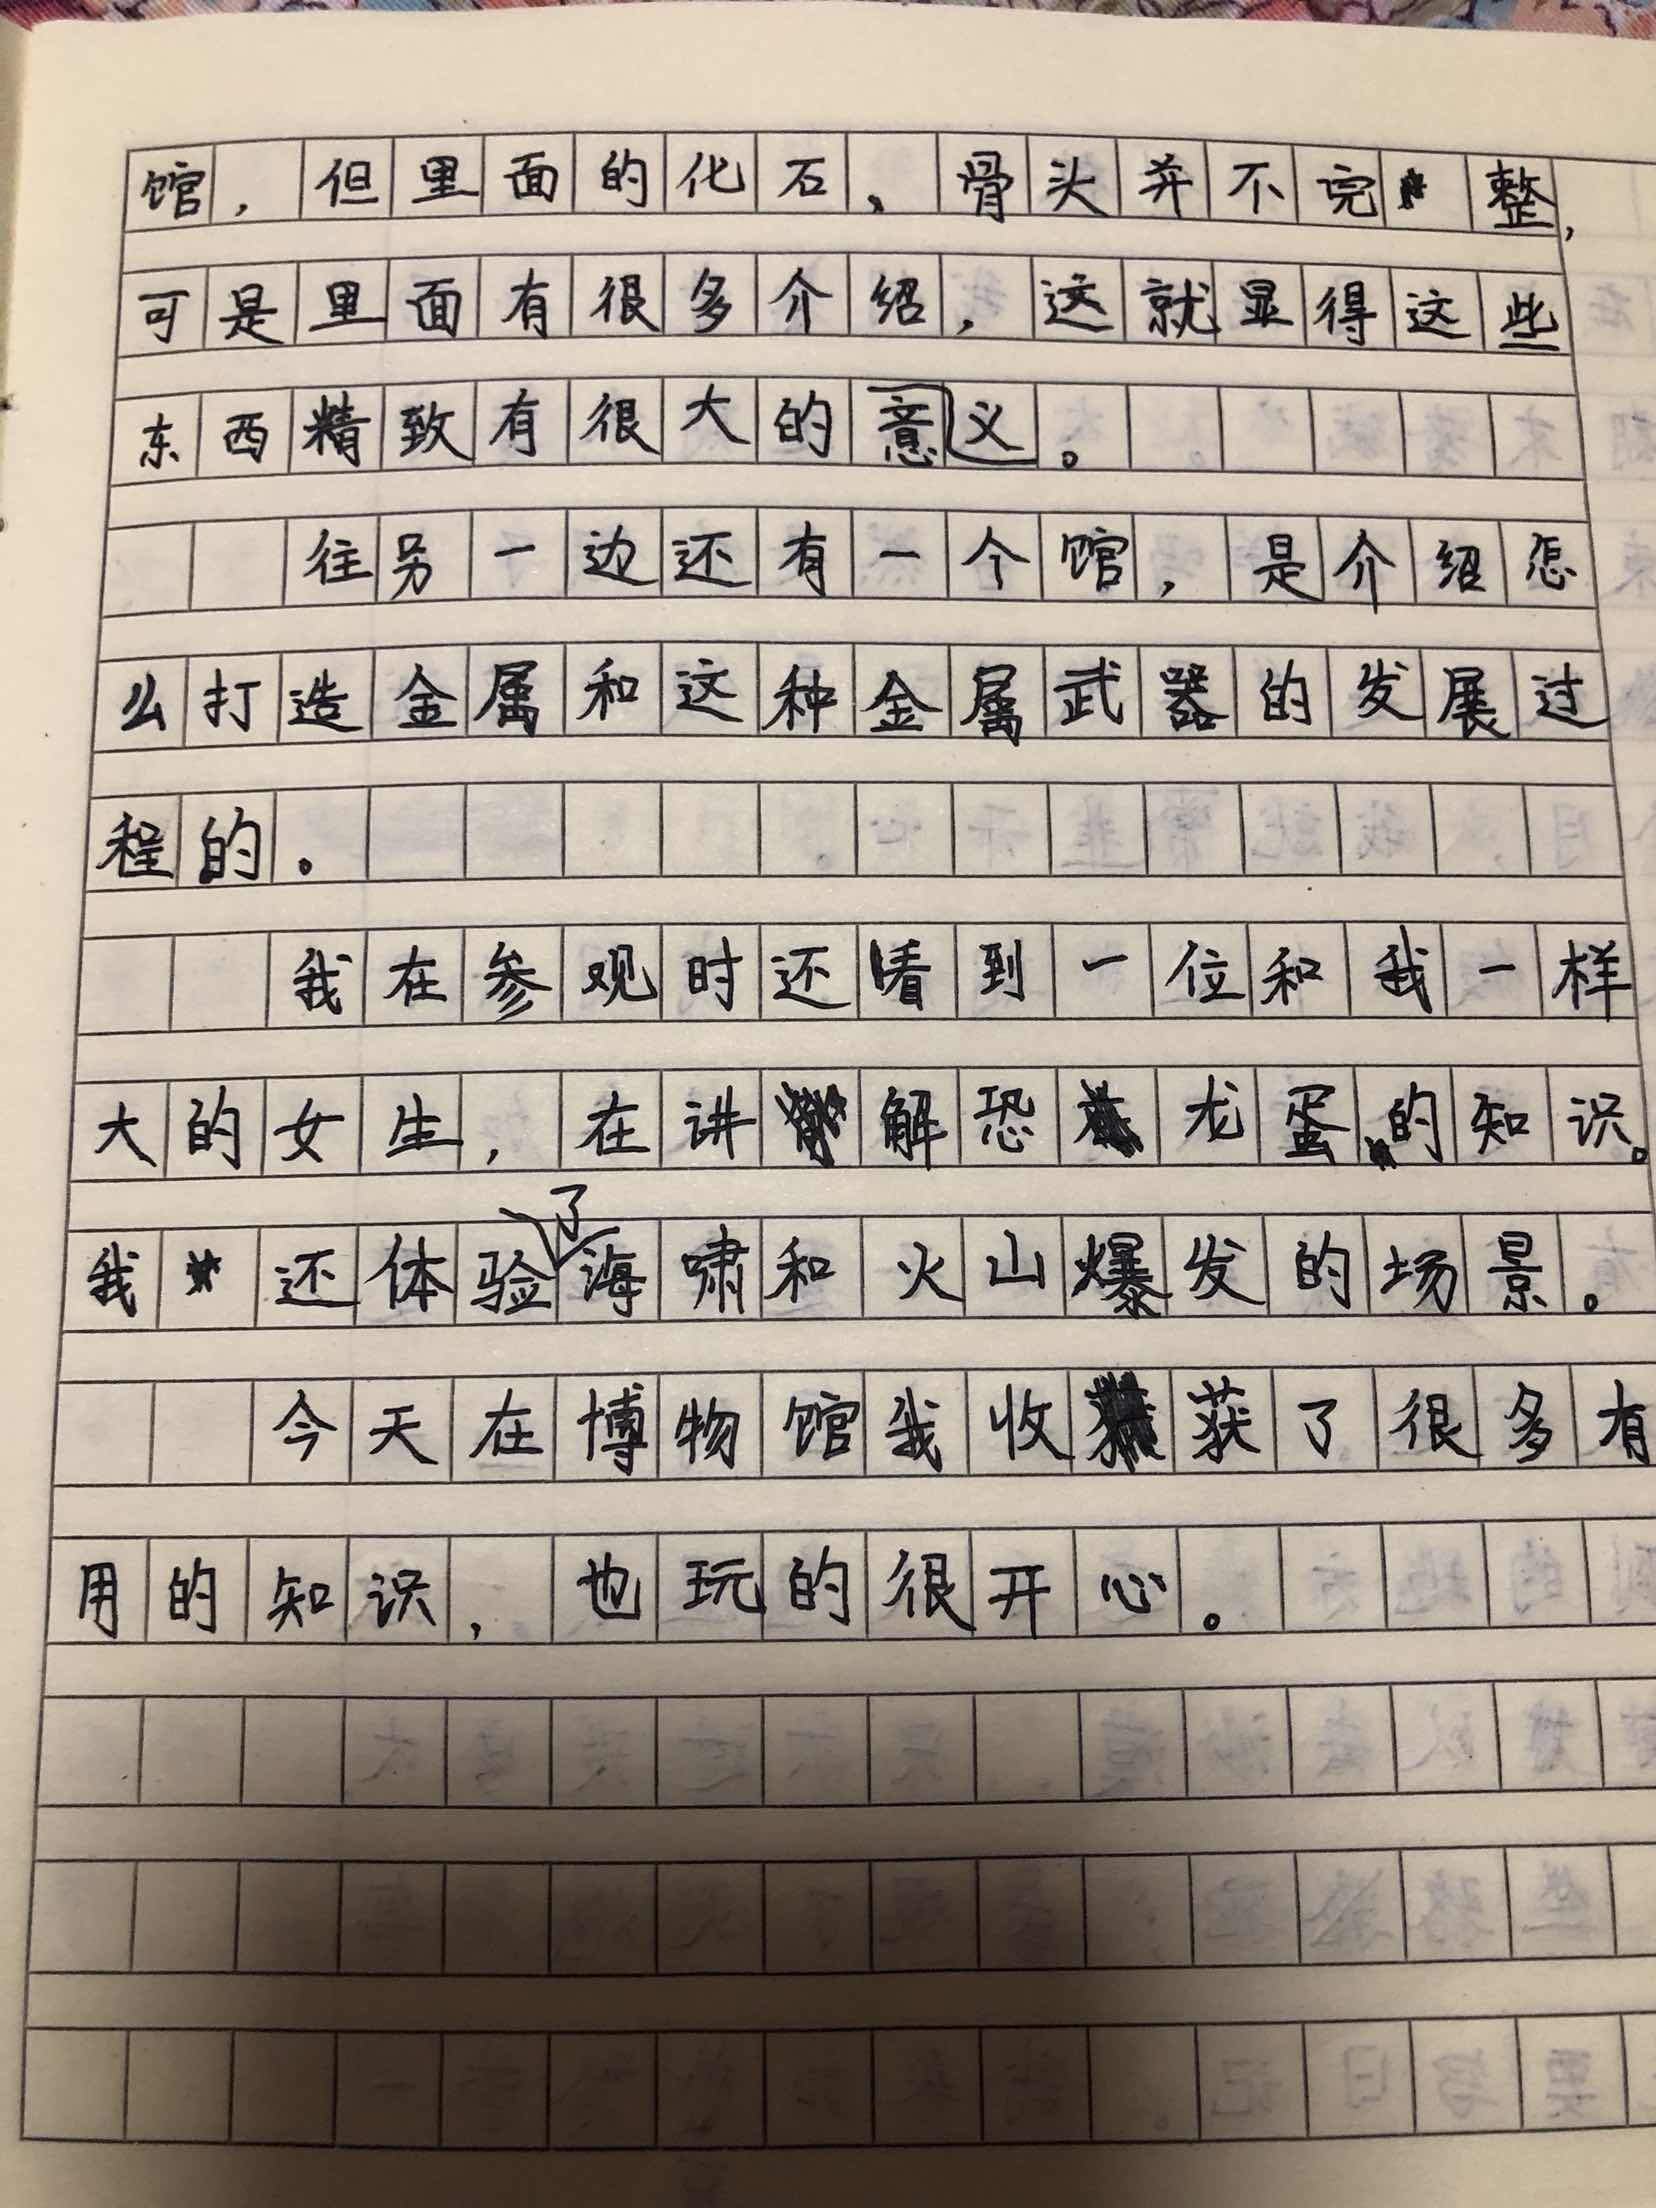 馆，但里面的化石、骨头并不完整，
可是里面有很多介绍，这就显得这些
东西精致有很大的意义。
往另一边还有一个馆，是介绍怎
么打造金属和这种金属武器的发展过
程的。
我在参观时还看到一位和我一样
大的女生，在讲解恐龙蛋的知识。
我还体验了海啸和火山爆发的场景。
今天在博物馆我收获了很多有
用的知识，也玩的很开心。